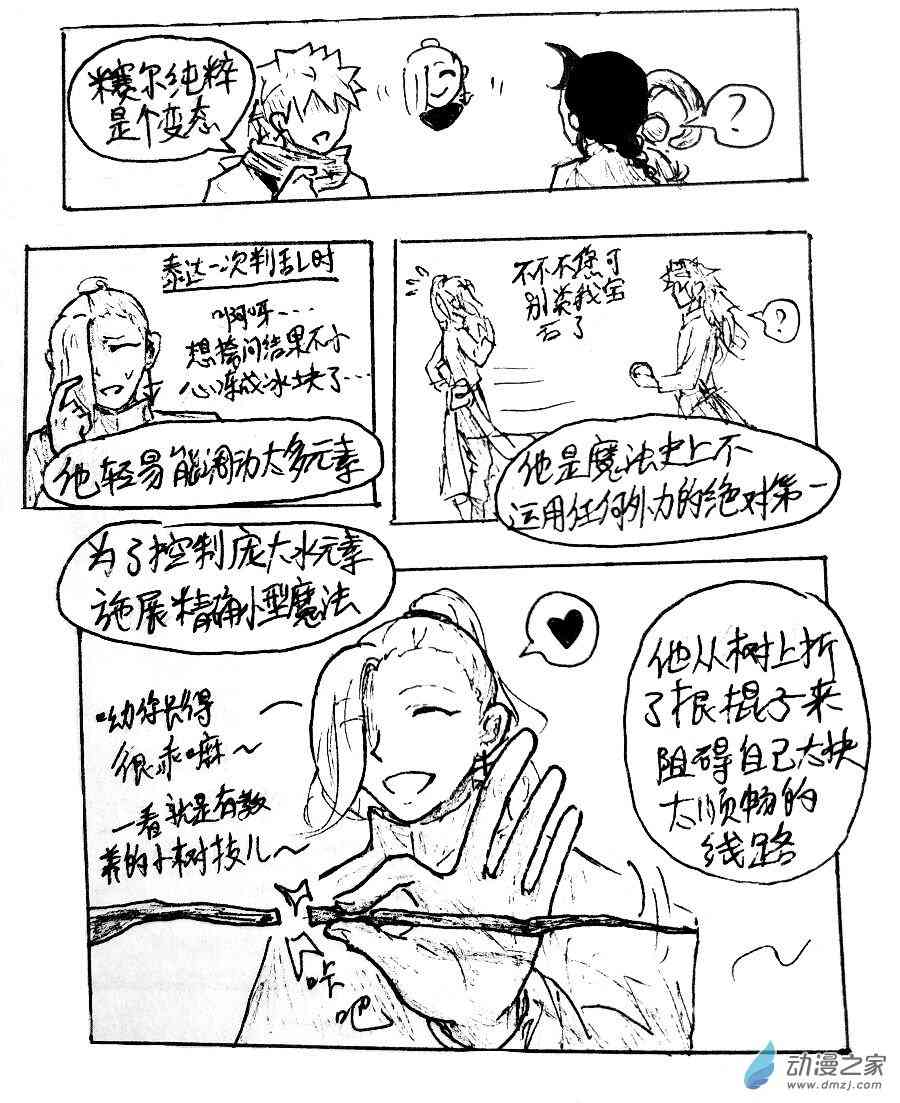 糠赛尔纯粹
是个变态
?
泰达一次判乱时
啊呀····
想捺问结果不小
心冻成冰块了···
他轻易能调动太多元素
不不不您可
别娄我宝
石了
?
他是魔法史上不
运用任何外力的绝对第一
为了控制庞大水元素
施展精确小型魔法
呦你长得
很乖嘛～
一看就是有教
养的小树技儿～
他从树上折
了根棍子来
阻碍自己太快
太顺畅的
线路
咔
吧
动漫之家
www.dmzj.com